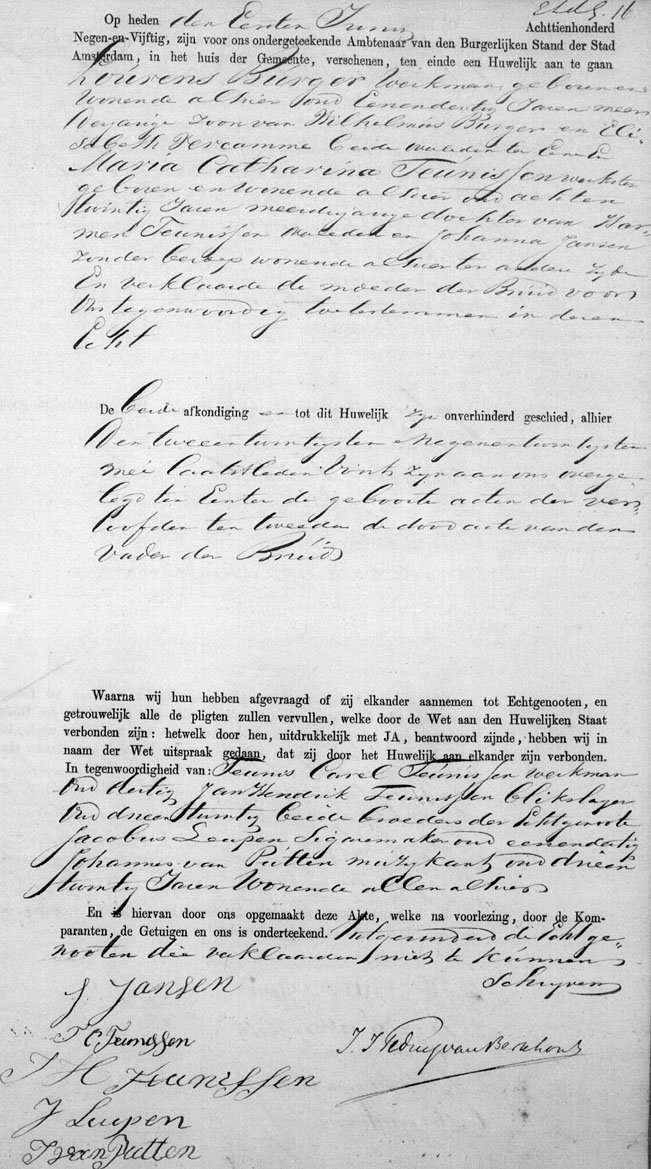 Op heden den Eersten Junij Achttienhonderd
Negen-en-Vijftig, zijn voor ons ondergeteekende Ambtenaar van den Burgerlijken Stand der Stad
Amsterdam, in het huis der Gemeente, verschenen, ten einde een Huwelijk aan te gaan
Lourens Burger Werkman, geboren en
Wonende alhier oud Eenendertig Jaren meer
derjarige Zoon van Wilhelmus Burger en Eli-
sabeth Vercamme beide overleden ter Eene &
Maria Catharina Teunissen werkster
geboren en wonende alhier oud achten
twintig Jaren meerderjarige dochter van Har-
men Teunissen overleden en Johanna Jansen
zonder beroep wonende alhier ter andere zijde
En verklaarde de moeder der Bruid voor
Ons tegenwoordig toetestemmen in dezen
Echt
De beide afkondigingen tot dit Huwelijk zijn onverhinderd geschied, alhier
Den tweeentwintigsten Negenentwintigsten
mei laatstleden zijn aan ons overge-
legd ten Eersten de geboorte acten der ver-
loofden ten tweeden de dood acte van den
Vader der Bruid
Waarna wij hun hebben afgevraagd of zij elkander aannemen tot Echtgenooten, en
getrouwelijk alle de pligten zullen vervullen, welke door de Wet aan den Huwelijken Staat
verbonden zijn: hetwelk door hen, uitdrukkelijk met JA, beantwoord zijnde, hebben wij in
naam der Wet uitspraak gedaan, dat zij door het Huwelijk aan elkander zijn verbonden.
In tegenwoordigheid van: Teunis Carel Teunissen werkman
oud dertig Jan Hendrik Teunissen blikslager
oud drieentwintig beide broeders der Echtgenoote
Jacobus Leupen Sigaremaker oud eenendertig
Johannes van Putten muzykant, oud drieen
twintig Jaren Wonende allen alhier
En is hiervan door ons opgemaakt deze Akte, welke na voorlezing, door de Kom-
paranten, de Getuigen en ons is onderteekend. Uitgezonderd de Echtge-
nooten die verklaarden niet te kunnen
Schryven
J Jansen
T C Teunissen
J H Teunissen
J Leupen
J van Putten